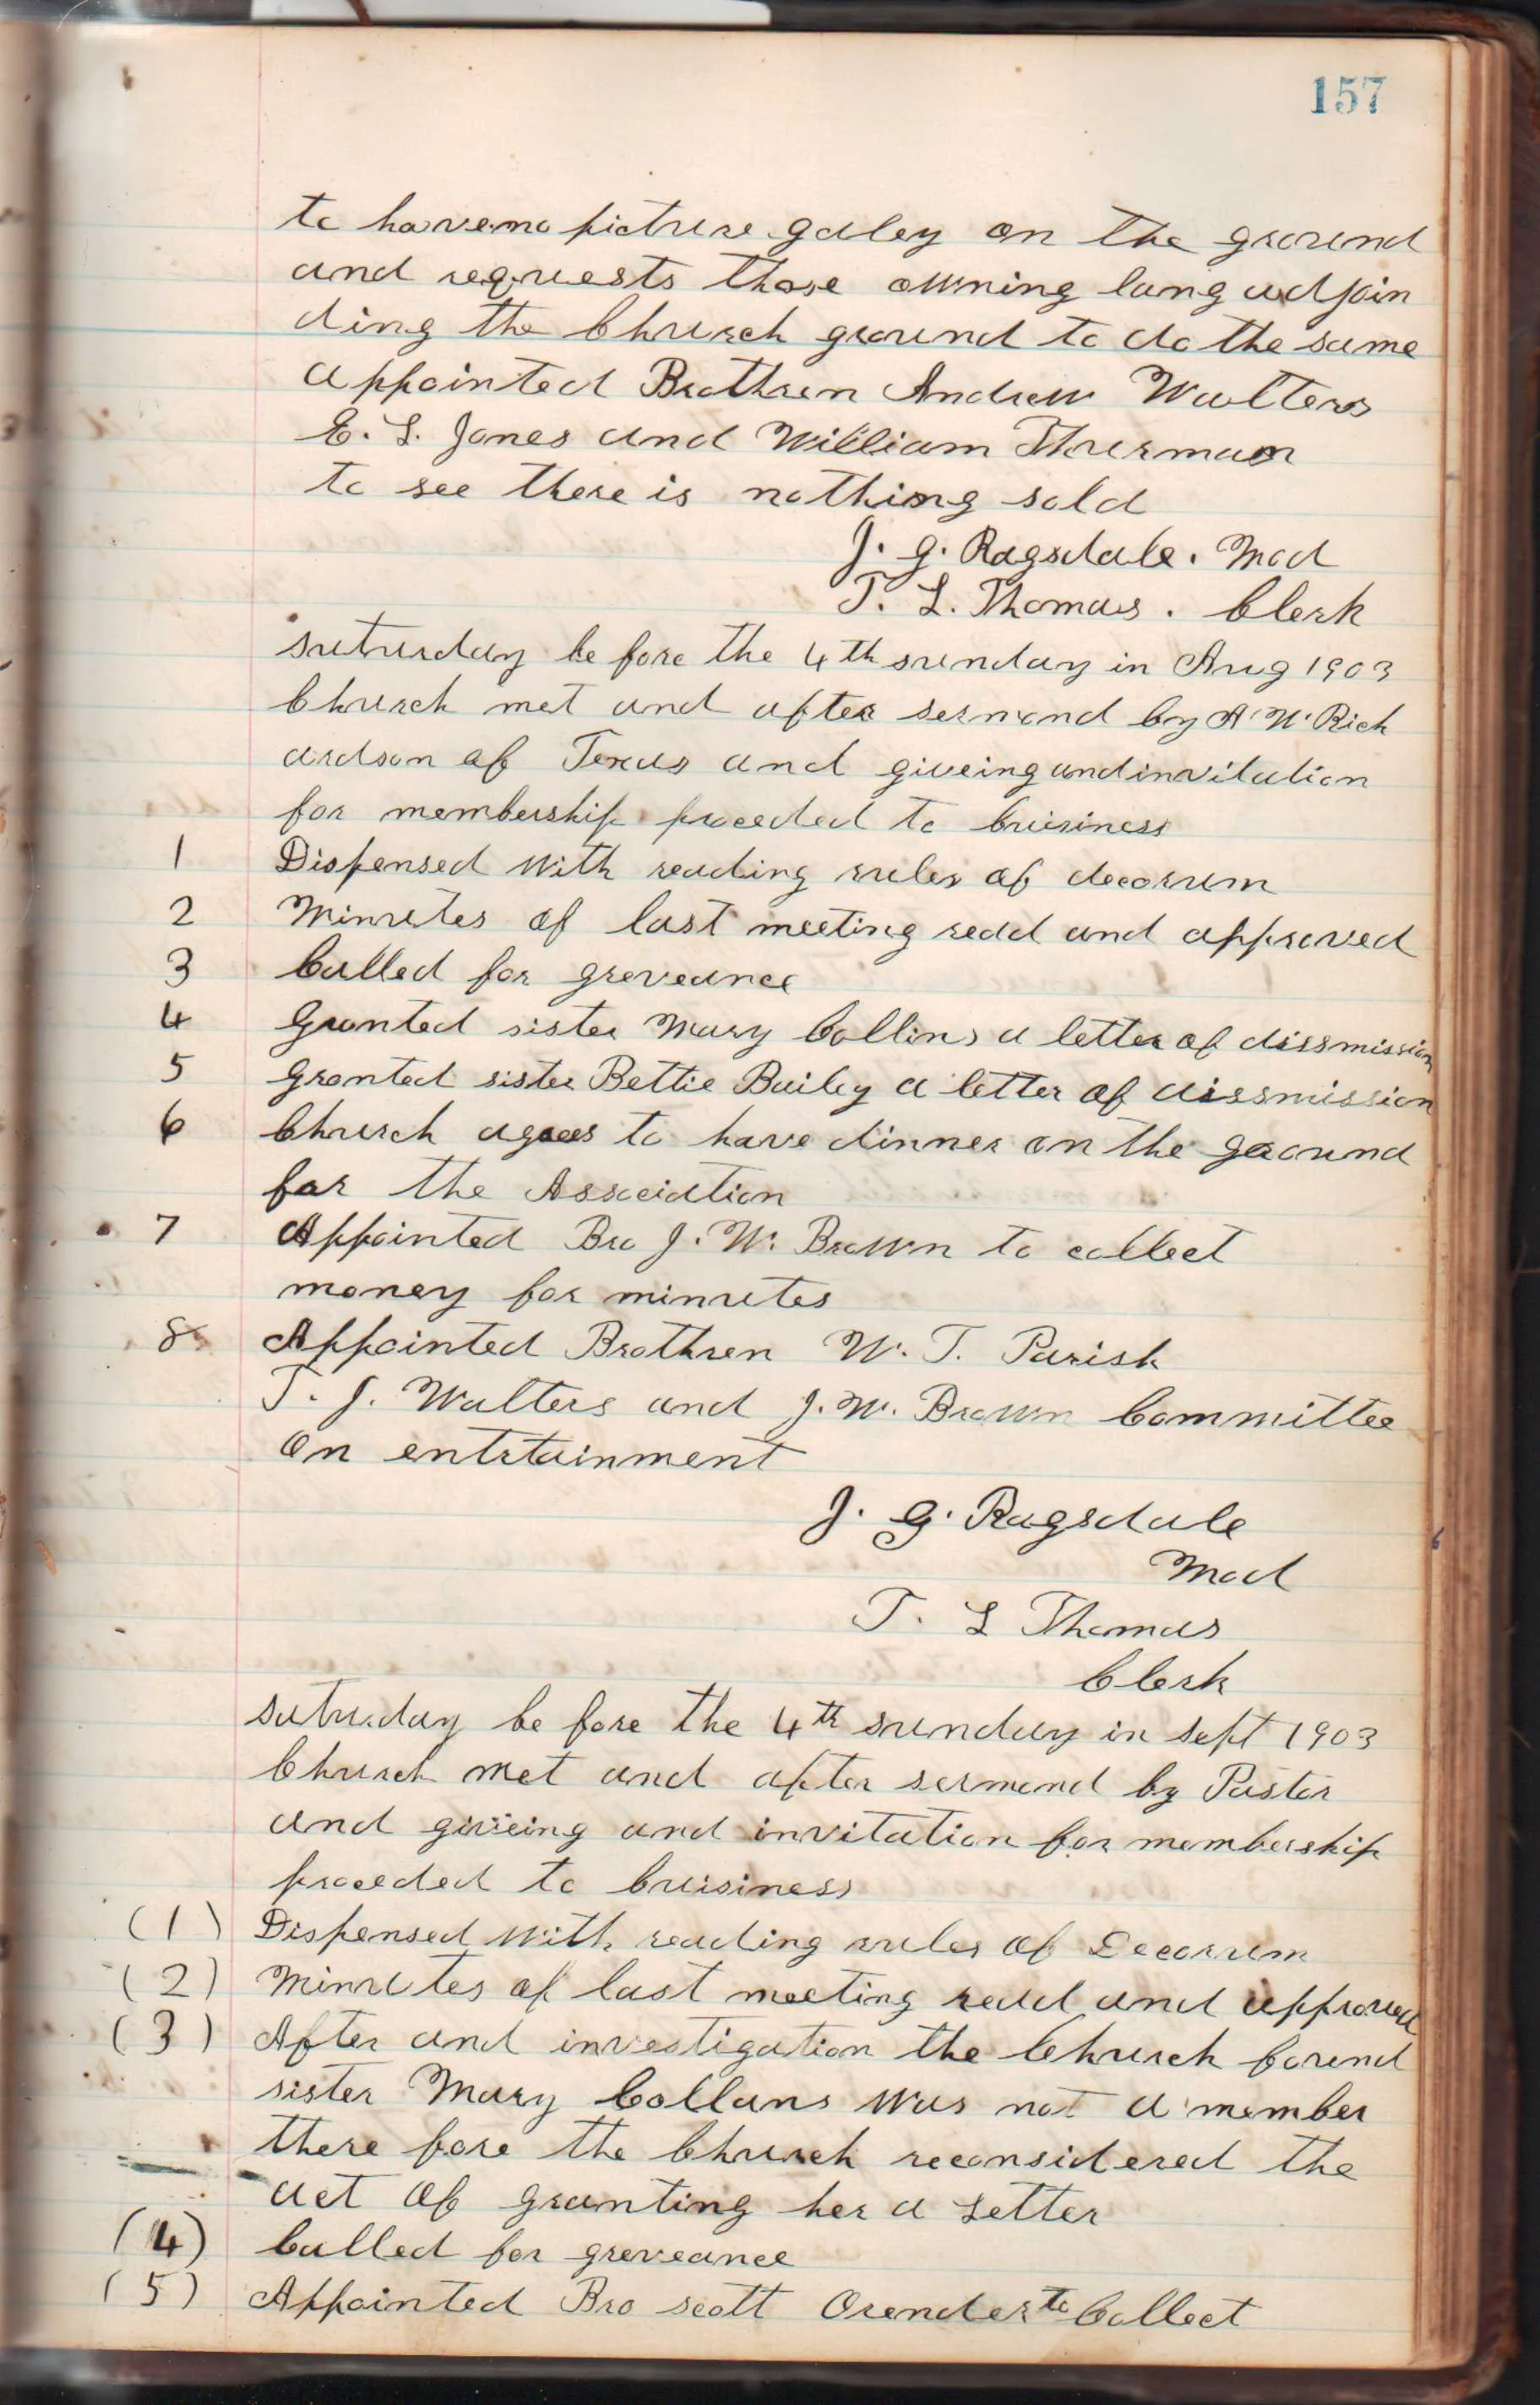 157
to have no picture galey on the ground
and requests those owning lang adjoin
ding the Church ground to do the same
appointed Brothren Andrew Walters
E. L. Jones and William Thurman
to see there is nothing sold
J. G. Ragsdale. Mod
T. L. Thomas. Clerk
saturday be fore the 4th sunday in Aug 1903
Church met and after sermond by A. W. Rich
ardson of Texas and giveing and invitation
for membership proceded to buisiness
1 Dispensed with reading rules of decorum
2 Minutes of last meeting read and approved
3 Called for greveance
4 Granted sister Mary Collins a letter of dissmission
5 Granted sister Bettie Bailey a letter of dissmission
6 Church agrees to have dinner on the ground
for the Association
7 Appointed Bro J. W. Brown to collect
money for minutes
8 Appointed Brothren W. T. Parish
T. J. Walters and J. W. Brown Committee
on entrtainment
J. G. Ragsdale
Mod
T. L Thomas
Clerk
saturday be fore the 4th sunday in Sept 1903
Church met and after sermond by Pastor
and giveing and invitation for membership
proceded to buisiness
(1) Dispensed with reading rules of Decorum
(2) Minutes of last meeting read and approved
(3) After and investigation the Church found
sister Mary Collans was not a member
there fore the Church reconsidered the
act of granting her a Letter
(4) Called for greveance
(5) Appointed Bro scott Orender to Collect